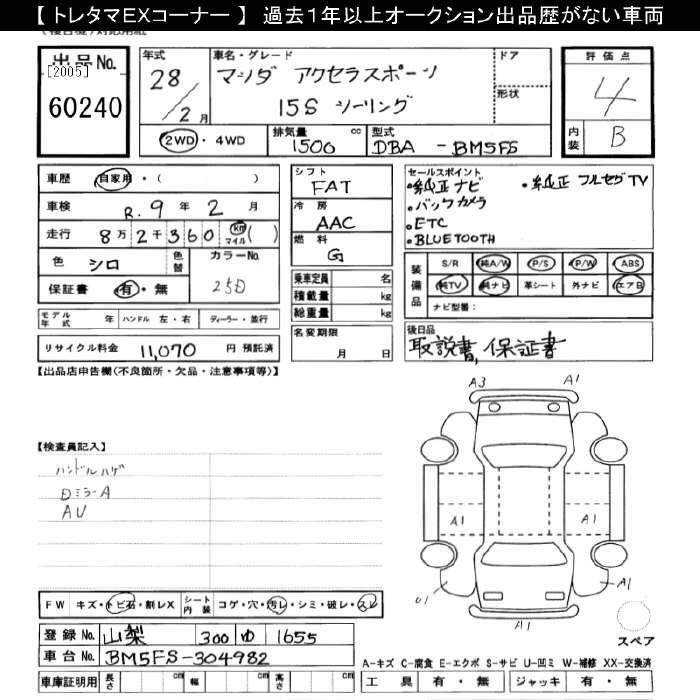 【 トレタマEXコーナー 】 過去1年以上オークション出品歴がない車両
出品No.
[2005]
60240
年式
28/2月
車名・グレード
マツダ アクセラスポーツ
15S ツーリング
ドア
形状
評価点
4
内装 B
2WD・4WD
排気量 1500 cc
型式 DBA - BM5FS
車歴 自家用・( )
車検 R. 9 年 2 月
走行 8万2千360 km マイル ( )
色 シロ 色替
カラーNo. 25D
保証書 有・無
シフト FAT
冷房 AAC
燃料 G
乗車定員 名
積載量 kg
総重量 kg
セールスポイント
・純正ナビ ・純正 フルセグTV
・バックカメラ
・ETC
・BLUETOOTH
装備品 S/R 純A/W P/S P/W ABS
純TV 純ナビ 革シート 外ナビ エアB
ナビ型番:
モデル年式 年 ハンドル 左・右 ディーラー・並行
リサイクル料金 11,070 円 預託済
名変期限 月 日
後日品
取説書, 保証書
【出品店申告欄(不良箇所・欠品・注意事項等)】
【検査員記入】
ハンドルハゲ
Dミラー A
AU
A3 A1
A1 A1
U1 A1
A1
スペア
FW キズ・トビ石・割レX
シート内装 コゲ・穴・汚レ・シミ・破レ・スレ
登録No. 山梨 300 ゆ 1655
車台No. BM5FS-304982
車庫証明用 長さ cm 幅 cm 高さ cm
A-キズ C-腐食 E-エクボ S-サビ U-凹ミ W-補修 XX-交換済
工具 有・無 ジャッキ 有・無